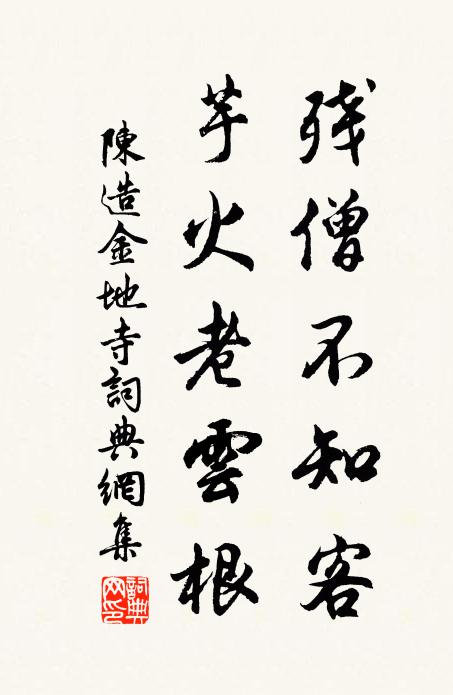 残僧不知客
芋火老雲根
陳造金地寺詞典網集
詞典网印